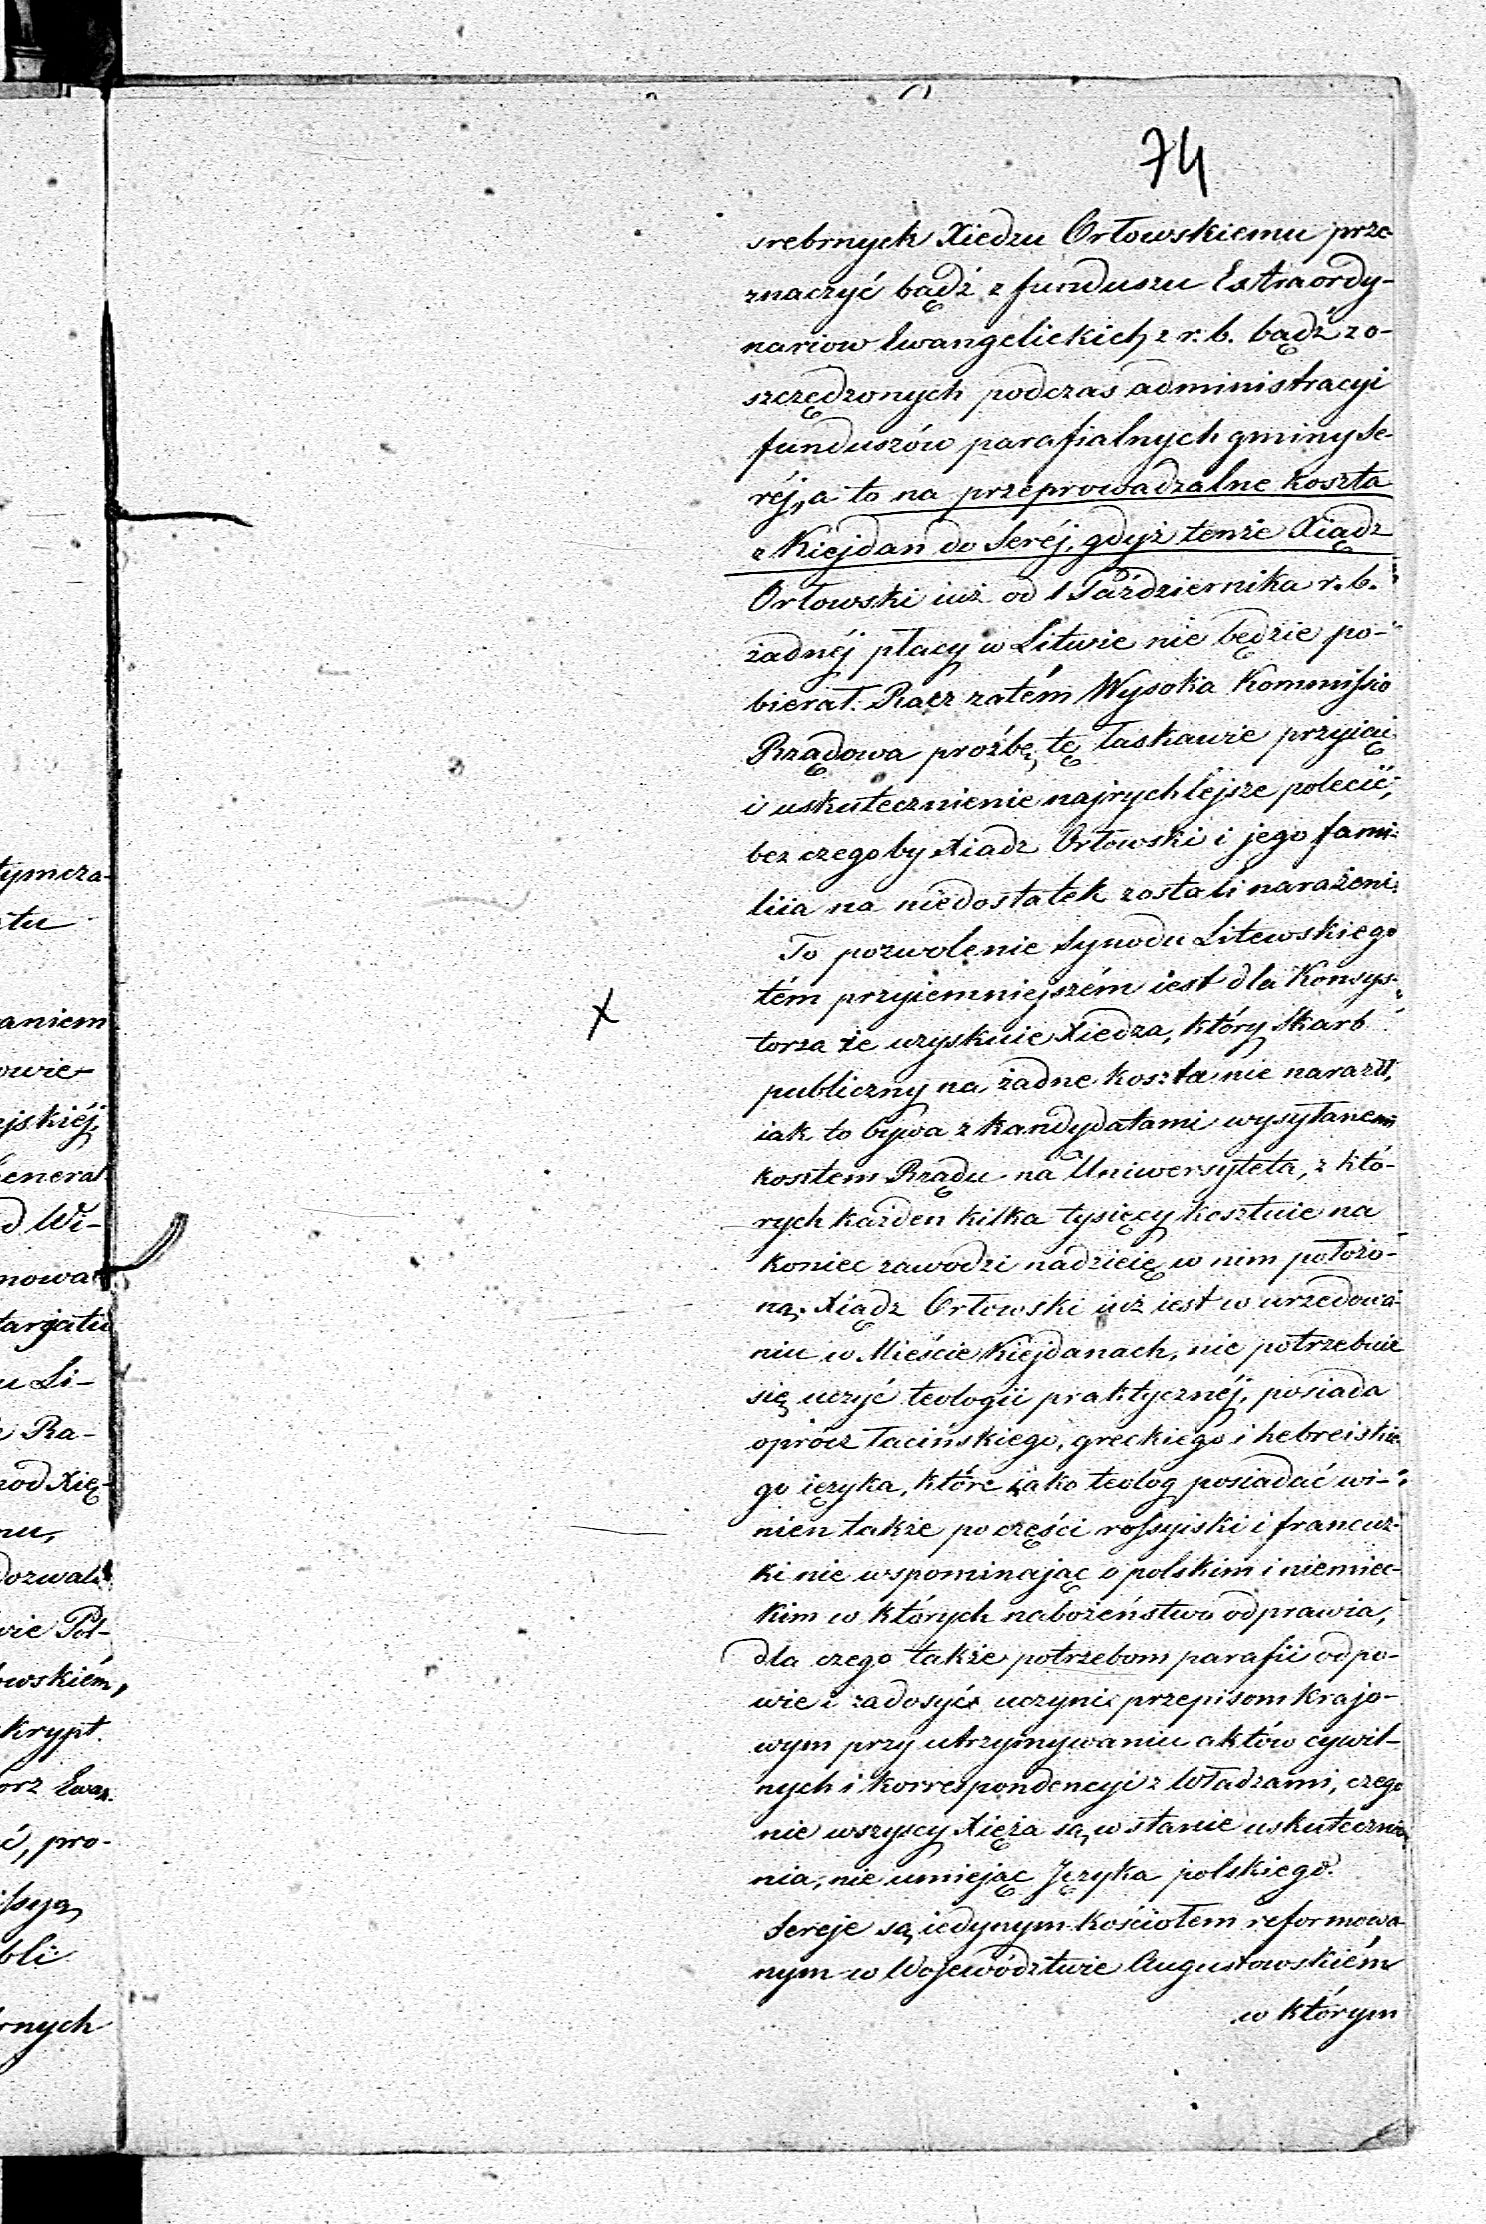 74
srebrnych Xiedzu Orłowskiemu prze-
znaczyć bądź z funduszu Extraordy-
nariow Ewangelickich z r. b. bądź z o-
szczędzonych podczas administracyi
funduszów parafialnych gminy Se-
réj, a to na przeprowadzalne koszta
z Kiejdan do Seréj, gdyż tenże Xiądz
Orłowski iuż od 1 Października r. b.
żadnéj płacy w Litwie nie będzie po-
bierał. Racz zatém Wysoka Kommissio
Rządowa proźbę tę łaskawie przyiąć
i uskutecznienie najrychlejsze polecić,
bez czego by Xiadz Orłowski i jego fami-
liia na niedostatek zostali narażeni.
To pozwolenie Synodu Litewskiego
tém przyiemniejszém iest dla Konsys-
torza że uzyskuie Xiedza, który Skarb
publiczny na żadne koszta nie naraził,
iak to bywa z kandydatami wysyłanemi
kosztem Rządu na Uniwersyteta, z któ-
rych każden kilka tysięcy kosztuie na
koniec zawodzi nadzieię w nim położo-
ną. Xiądz Orłowski iuż iest w urzedowa-
niu w Mieście Kiejdanach, nie potrzebuie
się uczyć teologii praktycznéj, posiada
oprócz łacińskiego, greckiego i hebreiskie-
go ięzyka, które iako teolog posiadać wi-
nien także po części rossyiski i francuz-
ki nie wspominając o polskim i niemiec-
kim w których nabożeństwo odprawia,
dla czego także potrzebom parafii odpo-
wie i zadosyć uczyni przepisom krajo-
wym przy utrzymywaniu aktów cywil-
nych i korrespondencyi z Władzami, czego
nie wszyscy Xięża są w stanie uskuteczni-
nia, nie umiejąc Języka polskiego.
Sereje są iedynym kościołem reformowa-
nym w Województwie Augustowskiém
w którym
tymcza-
atu
aniem
owie-
ejskiéj,
General
d Wi-
mowa
targatu
u Li-
Ra-
nod Xię-
mu,
dozwala
wie Pol-
owskiém,
skrypt.
orz Ewan.
ć, pro-
issyą
bli
rnych
X